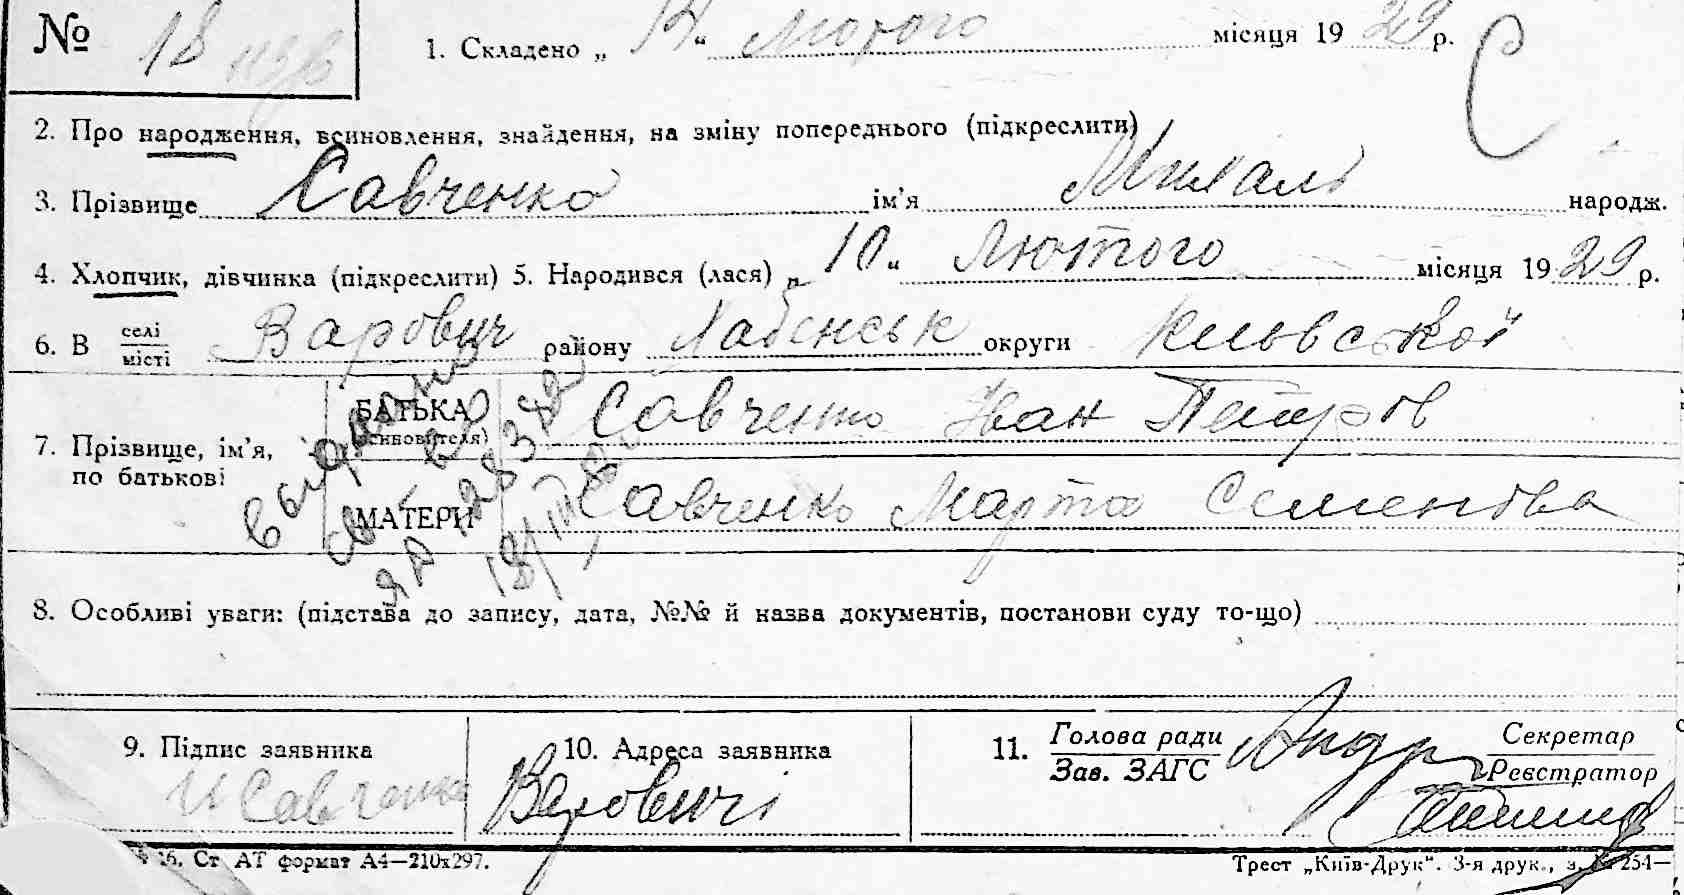 № 18
1. Складено „ 14 “ Лютого місяця 19 29 р.
С
2. Про народження, всиновлення, знайдення, на зміну попереднього (підкреслити)
3. Прізвище Савченко ім'я Михаль народж.
4. Хлопчик, дівчинка (підкреслити) 5. Народився (лася) „ 10 “ Лютого місяця 19 29 р.
6. В селі Варович району Хабенськ округи Київської
місті
БАТЬКА Савченко Іван Петров
(всиновителя)
7. Прізвище, ім'я,
по батькові
МАТЕРИ Савченко Марта Семенова
8. Особливі уваги: (підстава до запису, дата, №№ й назва документів, постанови суду то-що)
9. Підпис заявника 10. Адреса заявника 11. Голова ради Секретар
Зав. ЗАГС Реєстратор
И Савченко Варовичі
Ст. АТ формат А4—210х297. Трест „Київ-Друк“. 3-я друк., з. № 254—